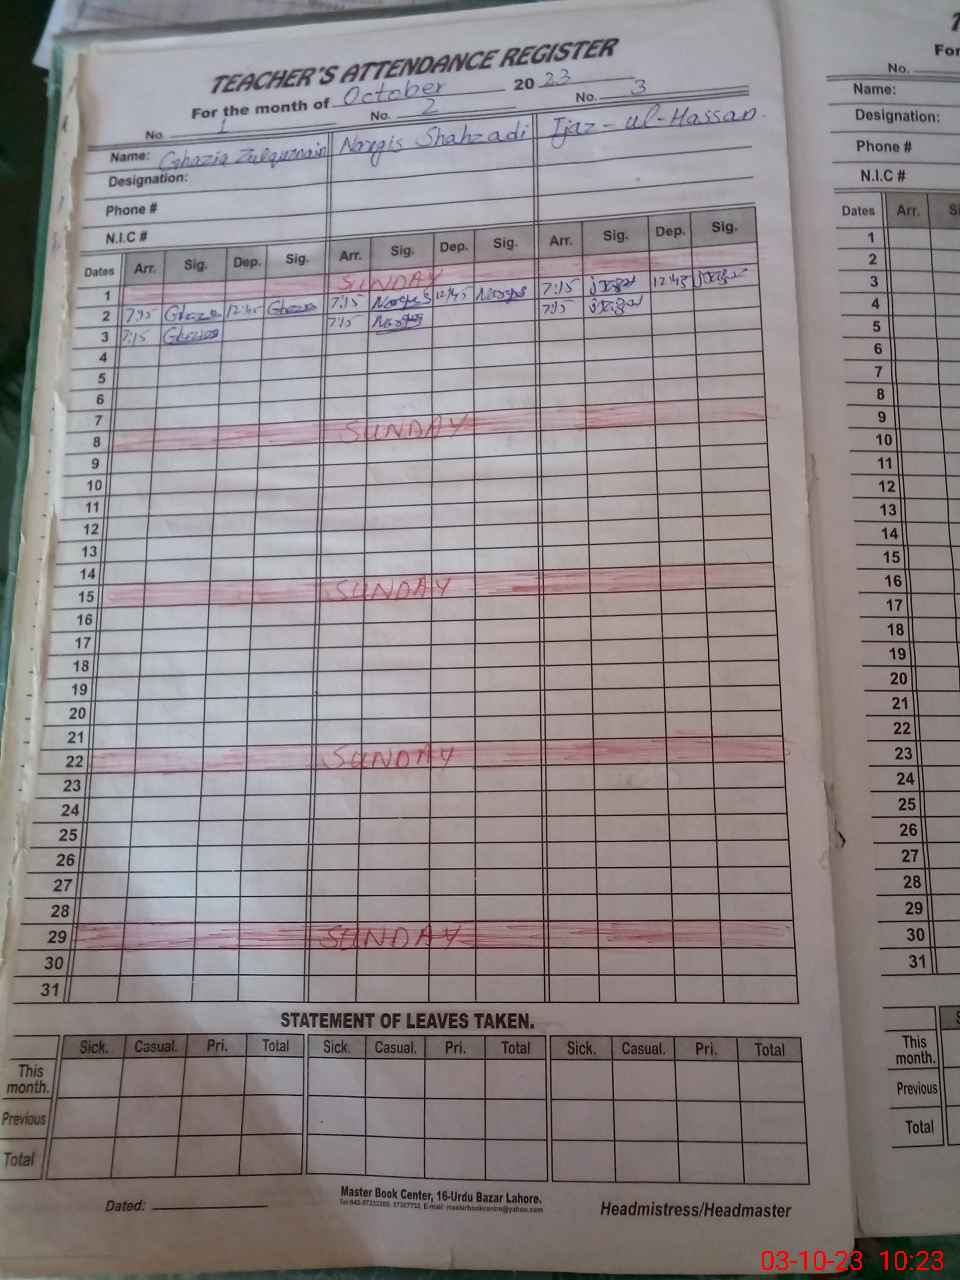 TEACHER'S ATTENDANCE REGISTER
For the month of October 2023
No. 1 No. 2 No. 3
Name: Ghazia Zulqurnain Nargis Shahzadi Ijaz-ul-Hassan.
Designation:
Phone #
N.I.C #
Dates Arr. Sig. Dep. Sig. Arr. Sig. Dep. Sig. Arr. Sig. Dep. Sig.
1 SUNDAY
2 7:15 Ghazia 12:45 Ghazia 7:15 Nargis 12:45 Nargis 7:15 12:45
3 7:15 Ghazia 7:15 Nargis 7:15
4
5
6
7
8 SUNDAY
9
10
11
12
13
14
15 SUNDAY
16
17
18
19
20
21
22 SUNDAY
23
24
25
26
27
28
29 SUNDAY
30
31
STATEMENT OF LEAVES TAKEN.
Sick. Casual. Pri. Total Sick. Casual. Pri. Total Sick. Casual. Pri. Total
This
month.
Previous
Total
Dated:
Master Book Center, 16-Urdu Bazar Lahore.
Headmistress/Headmaster
For
No.
Name:
Designation:
Phone #
N.I.C #
Dates Arr.
1
2
3
4
5
6
7
8
9
10
11
12
13
14
15
16
17
18
19
20
21
22
23
24
25
26
27
28
29
30
31
This
month.
Previous
Total
03-10-23 10:23